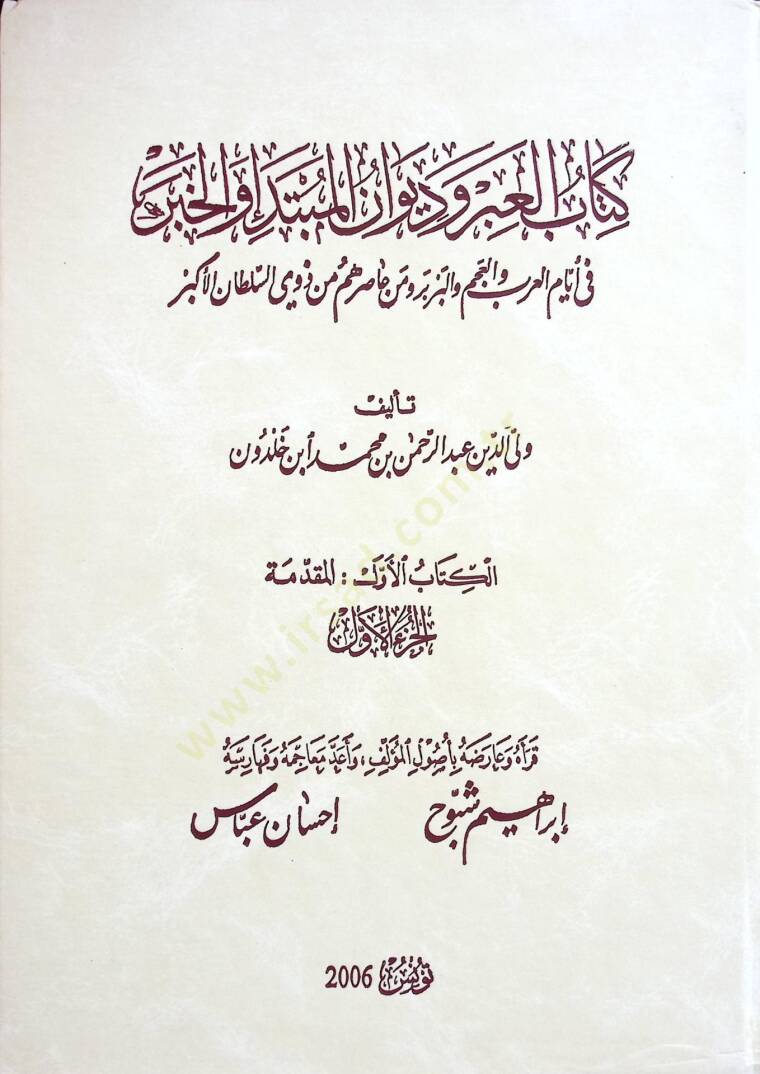 كتاب العبر وديوان المبتدإ والخبر
في أيام العرب والعجم والبربر ومن عاصرهم من ذوي السلطان الأكبر
تأليف
ولي الدين عبد الرحمن بن محمد ابن خلدون
الكتاب الأول : المقدمة
الجزء الأول
قرأه وعارضه بأصول المؤلف ، وأعد معاجمه وفهارسه
إبراهيم شبوح إحسان عباس
تونس 2006
www.irsad.com.tr